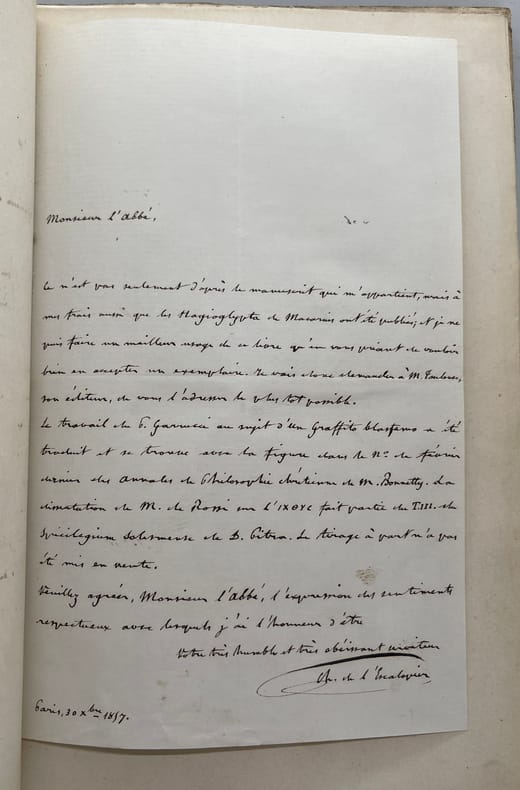 Monsieur l'abbé,
Ce n'est pas seulement d'après le manuscrit qui m'appartient, mais à
mes frais aussi que les Hagioglypta de Macarius ont été publiés, et je ne
puis faire un meilleur usage de ce livre qu'en vous priant de vouloir
bien en accepter un exemplaire. Je vais donc demander à M. Toulouse,
son éditeur, de vous l'adresser le plus tôt possible.
Le travail du P. Garrucci au sujet d'un Graffito blasfemo a été
traduit et se trouve avec la figure dans le No. de février
dernier des annales de Philosophie chrétienne de M. Bonnetty. La
dissertation de M. de Rossi sur l'ΙΧΘΥC fait partie du T. III. du
Spicilegium Solesmense de D. Pitra. Le tirage à part n'a pas
été mis en vente.
Veuillez agréer, Monsieur l'abbé, l'expression des sentiments
respectueux avec lesquels j'ai l'honneur d'être
Votre très humble et très obéissant serviteur
Ch. de l'Escalopier
Paris, 30 Xbre 1857.